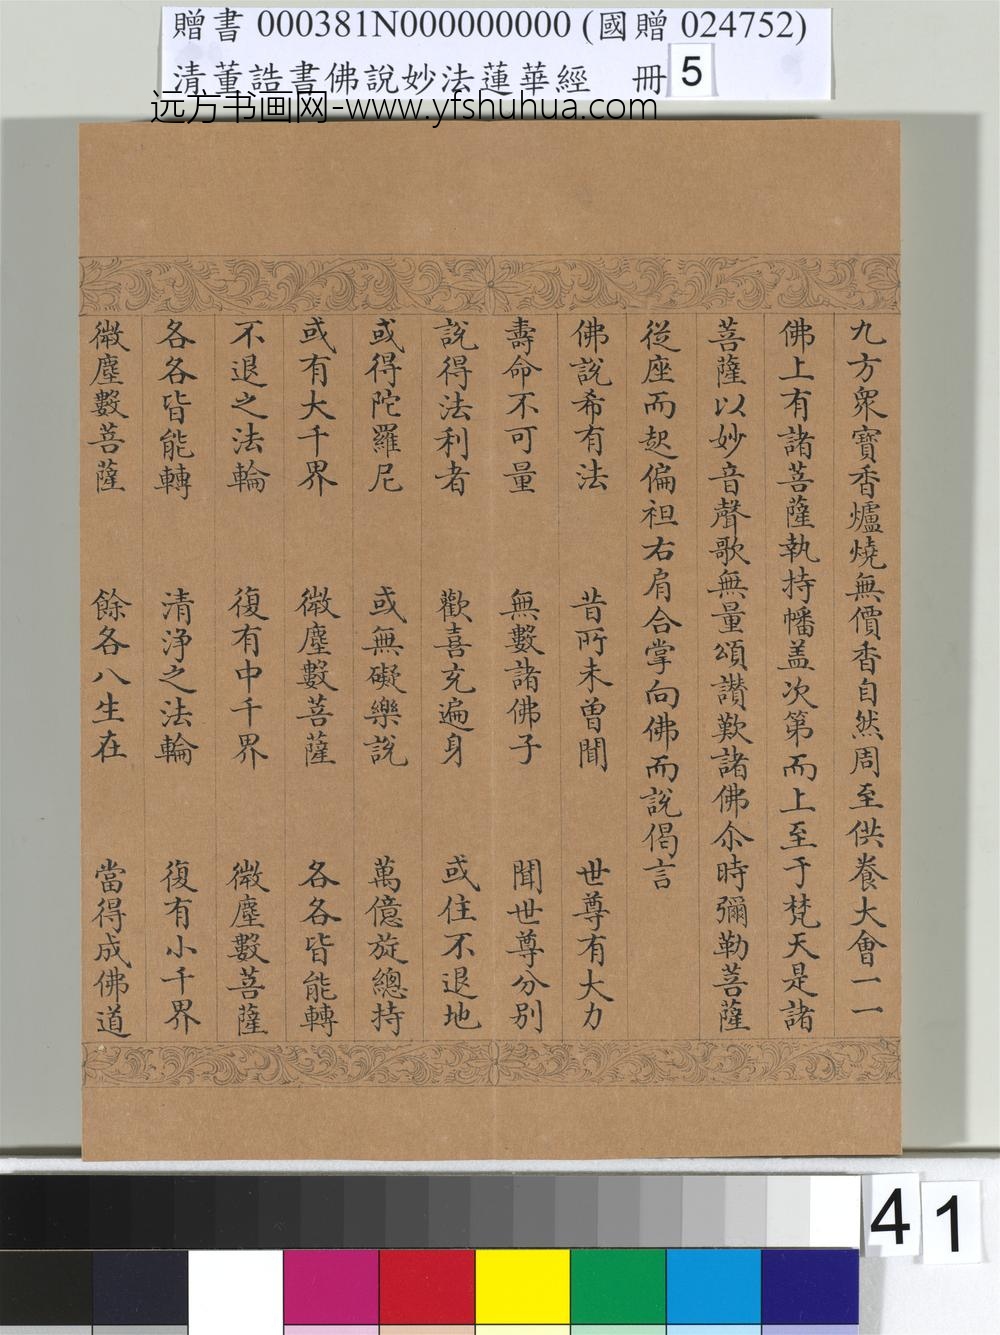 贈書 000381N000000000 (國贈 024752)
清董誥書佛說妙法蓮華經 冊 5
远方书画网-www.yfshuhua.com
九方眾寶香爐燒無價香自然周至供養大會一一
佛上有諸菩薩執持幡盖次第而上至于梵天是諸
菩薩以妙音聲歌無量頌讃歎諸佛尒時彌勒菩薩
從座而起偏袒右肩合掌向佛而說偈言
佛說希有法 昔所未曾聞 世尊有大力
壽命不可量 無數諸佛子 聞世尊分別
說得法利者 歡喜充遍身 或住不退地
或得陀羅尼 或無礙樂說 萬億旋總持
或有大千界 微塵數菩薩 各各皆能轉
不退之法輪 復有中千界 微塵數菩薩
各各皆能轉 清淨之法輪 復有小千界
微塵數菩薩 餘各八生在 當得成佛道
4 1